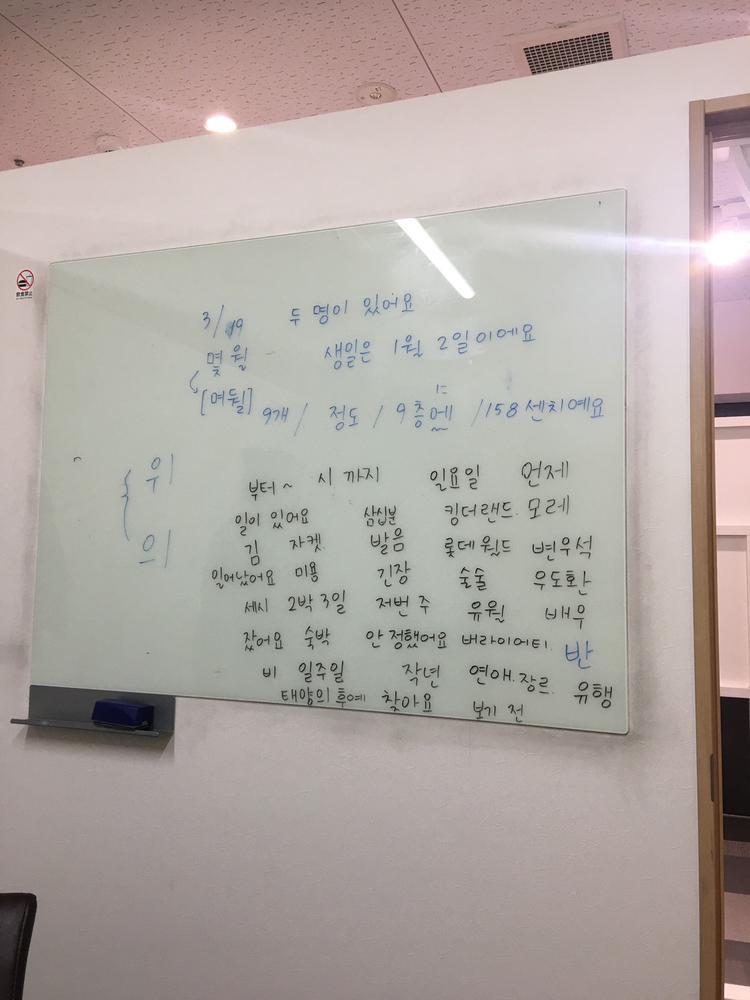 3/19 두 명이 있어요
몇 월 생일은 1월 2일이에요
[며둴] 9개 / 정도 / 9층엔 / 158 센치예요
위
의
부터 ~ 시 까지 일요일 언제
일이 있어요 삼십분 킹더랜드. 모레
김 자켓. 발음 롯데월드 변우석
일어났어요 미용 긴장 술술 우도환
세시 2박 3일 저번 주 유월 배우
잤어요 숙박 안 정했어요 버라이어티. 반
비 일주일 작년 연애. 장르. 유행
태양의 후예 찾아요 보기 전